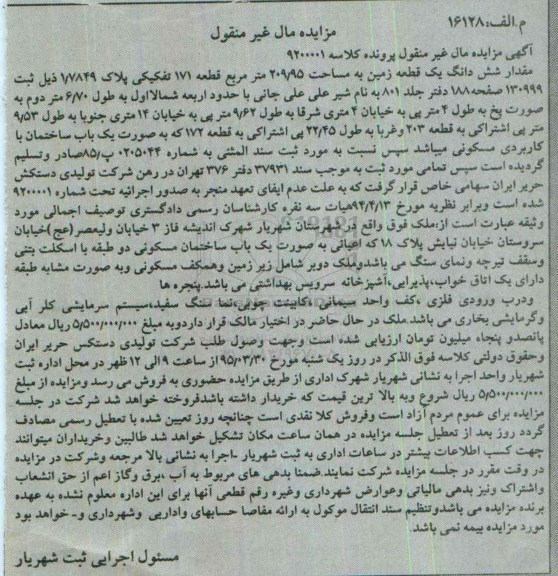 م.الف:۱۶۱۲۸
مزایده مال غیر منقول
آگهی مزایده مال غیر منقول پرونده کلاسه ۹۲۰۰۰۰۱
مقدار شش دانگ یک قطعه زمین به مساحت ۲۰۹/۹۵ متر مربع قطعه ۱۷۱ تفکیکی پلاک ۱/۷۸۴۹ ذیل ثبت
۱۳۰۹۹۹ صفحه۱۸۸ دفتر جلد ۸۰۱ به نام شیر علی علی جانی با حدود اربعه شمالااول به طول ۶/۷۰ متر دوم به
صورت پخ به طول ۴ متر پی به خیابان ۴ متری شرقا به طول ۹/۶۲ متر پی به خیابان ۱۴ متری جنوبا به طول ۹/۵۳
متر پی اشتراکی به قطعه ۲۰۳ وغربا به طول ۲۲/۴۵ پی اشتراکی به قطعه ۱۷۲ که به صورت یک باب ساختمان با
کاربردی مسکونی میباشد سپس نسبت به مورد ثبت سند المثنی به شماره ۰۲۰۵۰۴۴ پ/۸۵صادر وتسلیم
گردیده است سپس تمامی مورد ثبت به موجب سند ۳۷۹۳۱ دفتر ۳۷۶ تهران در رهن شرکت تولیدی دستکش
حریر ایران سهامی خاص قرار گرفت که به علت عدم ایفای تعهد منجر به صدور اجرائیه تحت شماره ۹۲۰۰۰۰۱
شده است وبرابر نظریه مورخ ۹۴/۴/۱۳هیات سه نفره کارشناسان رسمی دادگستری توصیف اجمالی مورد
وثیقه عبارت است از:ملک فوق واقع در شهرستان شهریار شهرک اندیشه فاز ۳ خیابان ولیعصر(عج)خیابان
سروستان خیابان نیایش پلاک ۱۸ که اعیانی به صورت یک باب ساختمان مسکونی دو طبقه با اسکلت بتنی
وسقف تیرچه ونمای سنگ می باشدوملک دوبر شامل زیر زمین وهمکف مسکونی وبه صورت مشابه طبقه
دارای یک اتاق خواب،پذیرایی،آشپزخانه سرویس بهداشتی می باشد.پنجره ها
ودرب ورودی فلزی ،کف واحد سیمانی ،کابینت چوبی،نما سنگ سفید،سیستم سرمایشی کلر آبی
وگرمایشی بخاری می باشد.ملک در حال حاضر در اختیار مالک قرار داردوبه مبلغ ۵/۵۰۰/۰۰۰/۰۰۰ ریال معادل
پانصدو پنجاه میلیون تومان ارزیابی شده است وجهت وصول طلب شرکت تولیدی دستکس حریر ایران
وحقوق دولتی کلاسه فوق الذکر در روز یک شنبه مورخ ۹۵/۰۳/۳۰ از ساعت ۹ الی ۱۲ ظهر در محل اداره ثبت
شهریار واحد اجرا به نشانی شهریار شهرک اداری از طریق مزایده حضوری به فروش می رسد ومزایده از مبلغ
۵/۵۰۰/۰۰۰/۰۰۰ ریال شروع وبه بالا ترین قیمت که خریدار داشته باشدفروخته خواهد شد شرکت در جلسه
مزایده برای عموم مردم آزاد است وفروش کلا نقدی است چنانچه روز تعیین شده با تعطیل رسمی مصادف
گردد روز بعد از تعطیل جلسه مزایده در همان ساعت مکان تشکیل خواهد شد طالبین وخریداران میتوانند
جهت کسب اطلاعات بیشتر در ساعات اداری به ثبت شهریار -اجرا به نشانی بالا مرجعه وشرکت در مزایده
در وقت مقرر در جلسه مزایده شرکت نمایند.ضمنا بدهی های مربوط به آب ،برق وگاز اعم از حق انشعاب
واشتراک ونیز بدهی مالیاتی وعوارض شهرداری وغیره رقم قطعی آنها برای این اداره معلوم نشده به عهده
برنده مزایده می باشدوتنظیم سند انتقال موکول به ارائه مفاصا حسابهای واداریی وشهرداری و- خواهد بود
مورد مزایده بیمه نمی باشد.
مسئول اجرایی ثبت شهریار